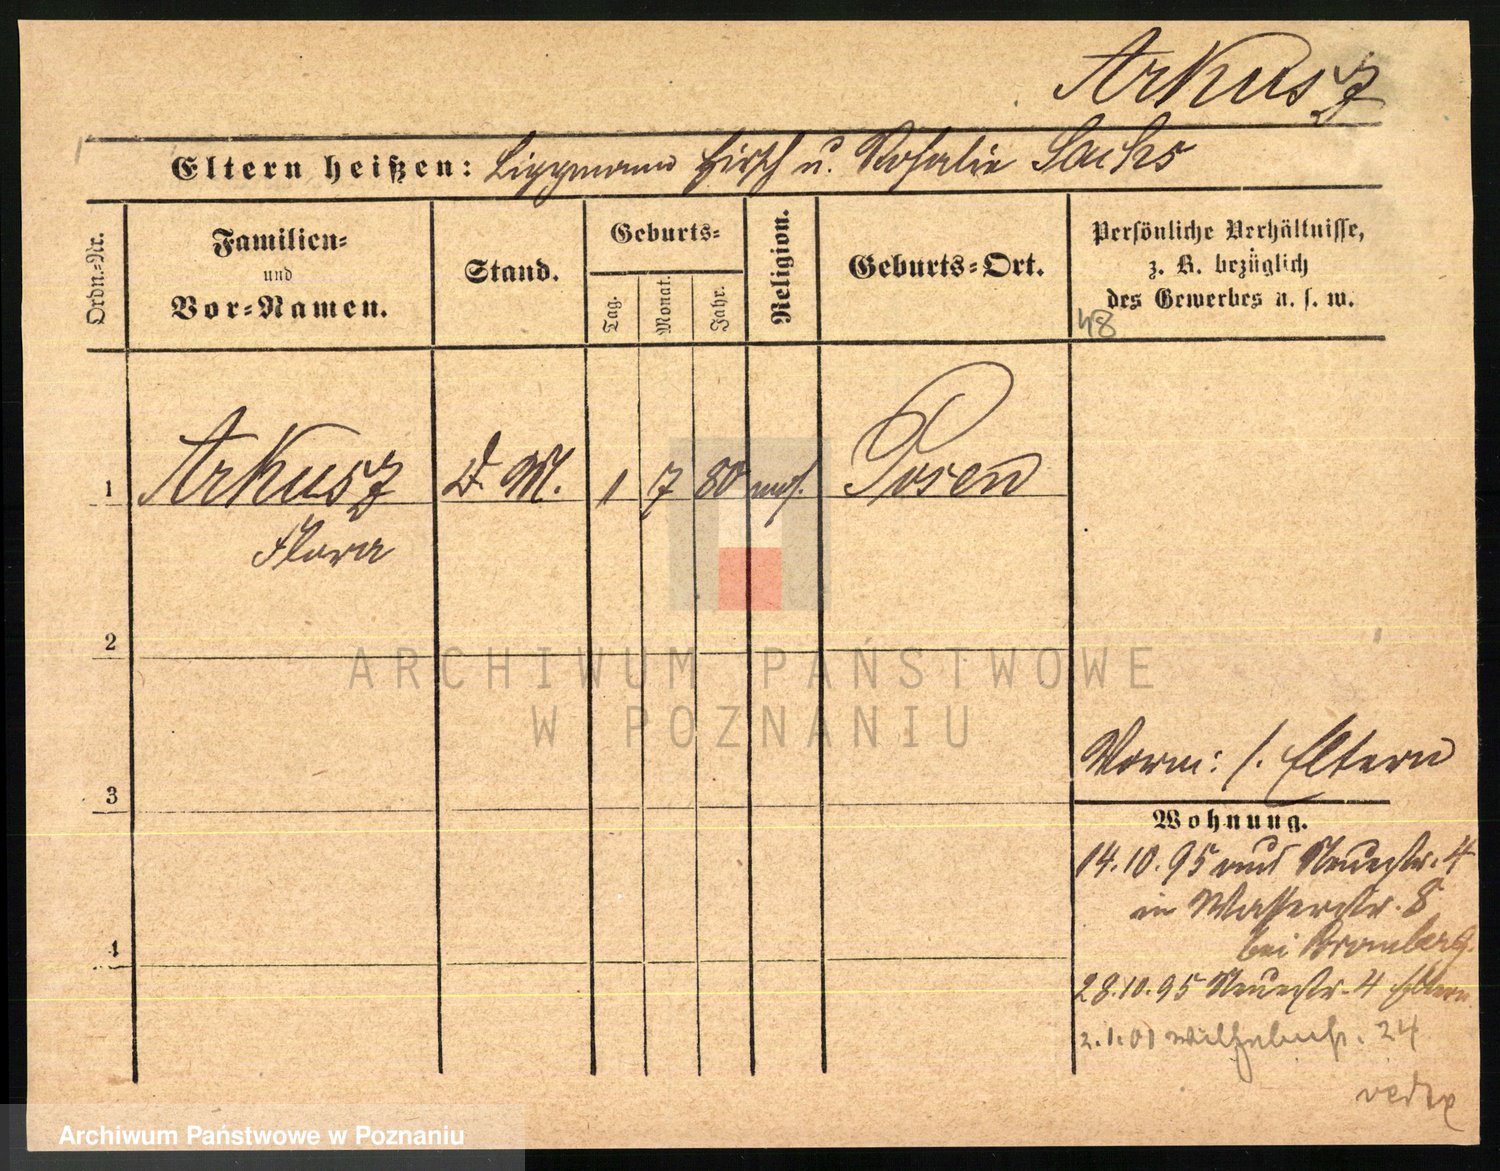 Arkusz
Eltern heißen: Lippmann Hirsch u. Rosalie Sachs
Ordn.-Nr.
Familien-
und
Vor-Namen.
Stand.
Geburts-
Tag.
Monat.
Jahr.
Religion.
Geburts-Ort.
Persönliche Verhältnisse,
z. B. bezüglich
des Gewerbes u. s. w.
48
1 Arkusz D. M. 1 7 80 mos. Posen
Flora
2
ARCHIWUM PAŃSTWOWE
W POZNANIU
Vorm: s. Eltern
3
Wohnung.
14.10.95 aus Neuestr. 4
in Wasserstr. 8
bei Bromberg.
4
28.10.95 Neuestr. 4 Eltern
2.1.01 Wilhelmstr. 24
Archiwum Państwowe w Poznaniu